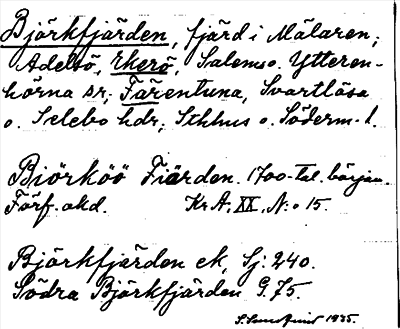 Björkfjärden, fjärd i Mälaren;
Adelsö, Ekerö, Salems o. Ytteren-
hörna sr; Färentuna, Svartlösa
o. Selebo hdr; Sthlms o. Söderm. l.
Biörköö Fiärden. 1700-tal. början.
Förf. okd. Kr A. XX, N:o 15.
Björkfjärden ek, Sj: 240.
Södra Björkfjärden G. 75.
1935.